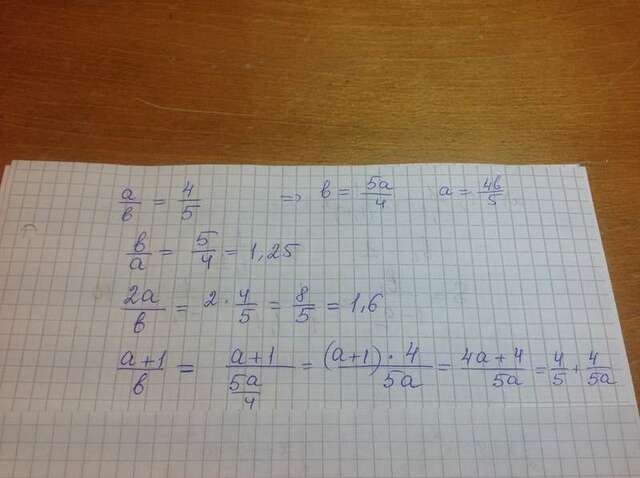 a/в = 4/5 => в = 5a/4 a = 4в/5
в/a = 5/4 = 1,25
2a/в = 2 · 4/5 = 8/5 = 1,6
a+1/в = a+1/(5a/4) = (a+1) · 4/5a = 4a+4/5a = 4/5 + 4/5a